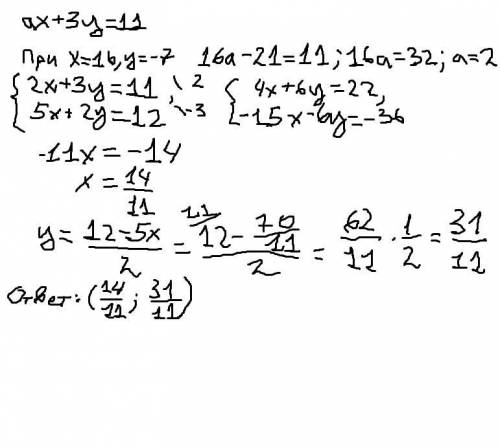 ax+3y=11
При x=16, y=-7 16a-21=11; 16a=32; a=2
{2x+3y=11, | 2 {4x+6y=22,
{5x+2y=12 | -3 {-15x-6y=-36
-11x=-14
x=14/11
y=(12-5x)/2=(12-70/11)/2=62/11·1/2=31/11
Ответ: (14/11; 31/11)